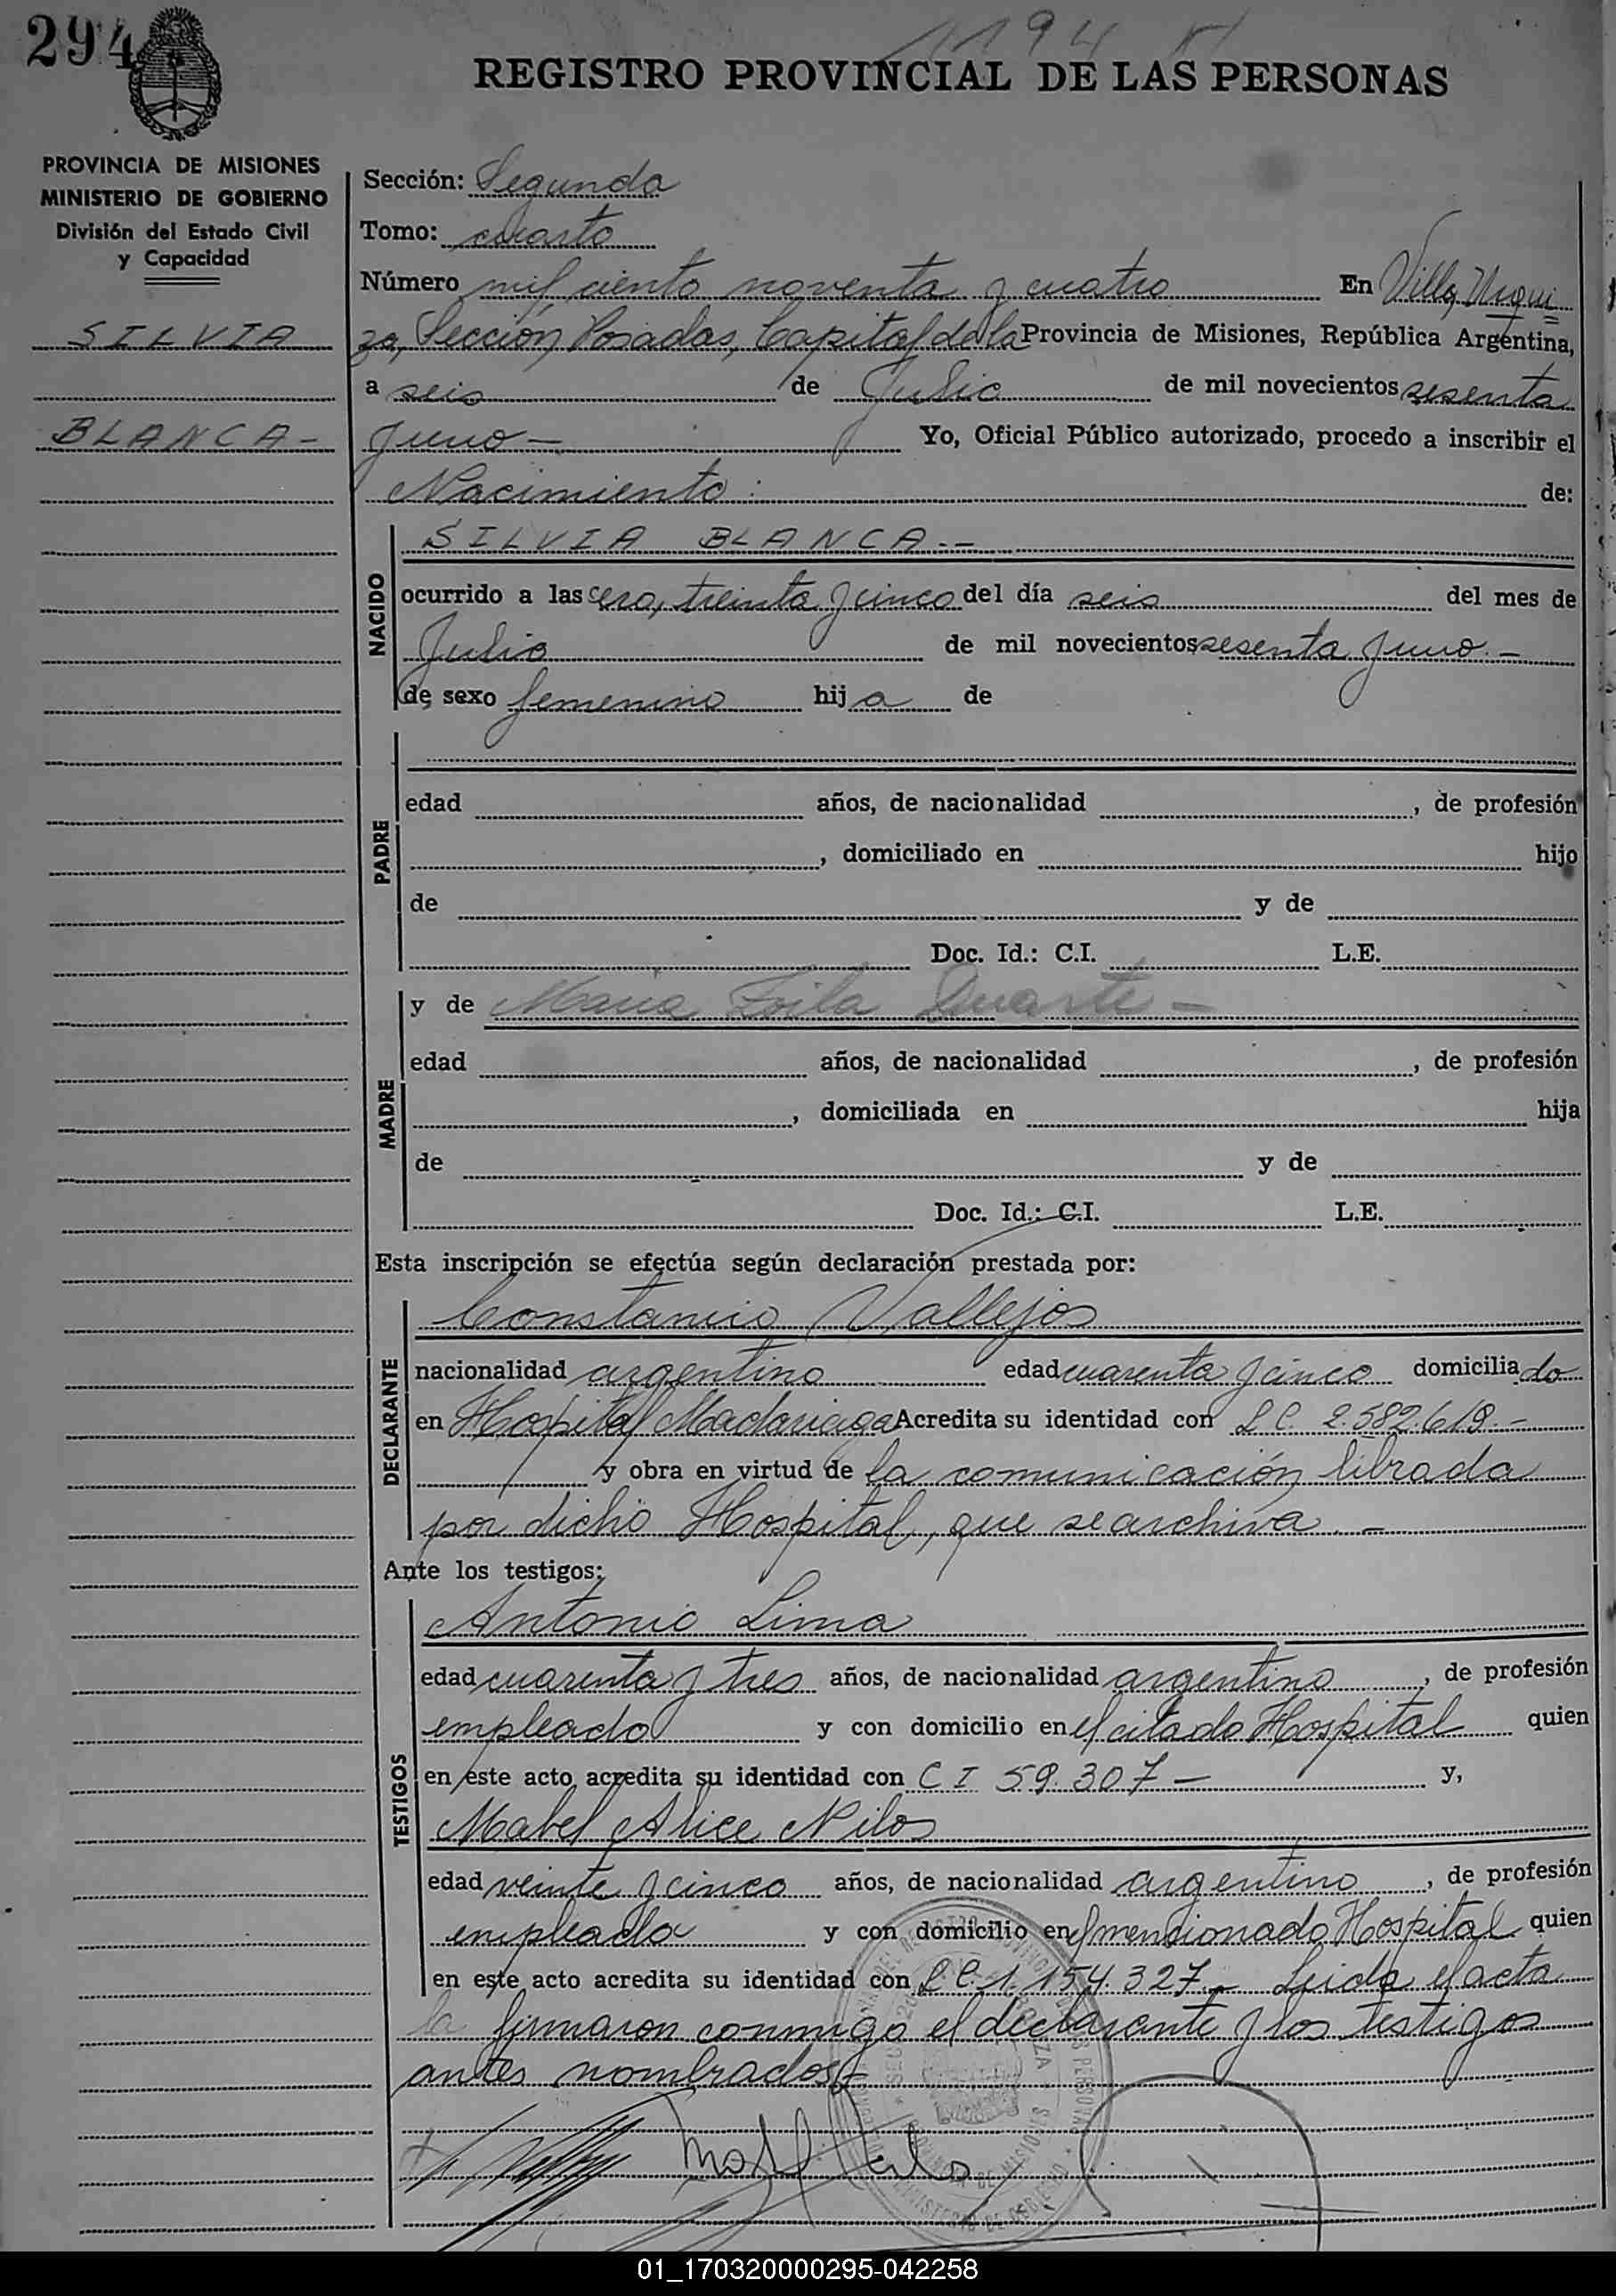 294
1194
REGISTRO PROVINCIAL DE LAS PERSONAS
PROVINCIA DE MISIONES
MINISTERIO DE GOBIERNO
División del Estado Civil
y Capacidad
SILVIA
BLANCA-
Sección: Segunda
Tomo: cuarto
Número mil ciento noventa y cuatro En Villa Urqui
za, Sección Posadas, Capital de la Provincia de Misiones, República Argentina,
a seis de Julio de mil novecientos sesenta
y uno - Yo, Oficial Público autorizado, procedo a inscribir el
Nacimiento: de:
NACIDO
SILVIA BLANCA.-
ocurrido a las cero, treinta y cinco del día seis del mes de
Julio de mil novecientos sesenta y uno.-
de sexo femenino hija de
PADRE
edad años, de nacionalidad , de profesión
, domiciliado en hijo
de y de
Doc. Id.: C.I. L.E.
MADRE
y de Maria Zoila Duarte -
edad años, de nacionalidad , de profesión
, domiciliada en hija
de y de
Doc. Id.: C.I. L.E.
Esta inscripción se efectúa según declaración prestada por:
DECLARANTE
Constancio Vallejos
nacionalidad argentino edad cuarenta y cinco domiciliado
en Hospital Madariaga Acredita su identidad con 2.582.619.-
y obra en virtud de la comunicación librada
por dicho Hospital, que se archiva.-
Ante los testigos:
TESTIGOS
Antonio Lima
edad cuarenta y tres años, de nacionalidad argentino , de profesión
empleado y con domicilio en el citado Hospital quien
en este acto acredita su identidad con C I 59.307 - y,
Mabel Alice Nilos
edad veinte y cinco años, de nacionalidad argentino , de profesión
empleada y con domicilio en el mencionado Hospital quien
en este acto acredita su identidad con L C. 1.154.327.- Leida el acta
la firmaron conmigo el declarante y los testigos
antes nombrados.-
01_170320000295-042258